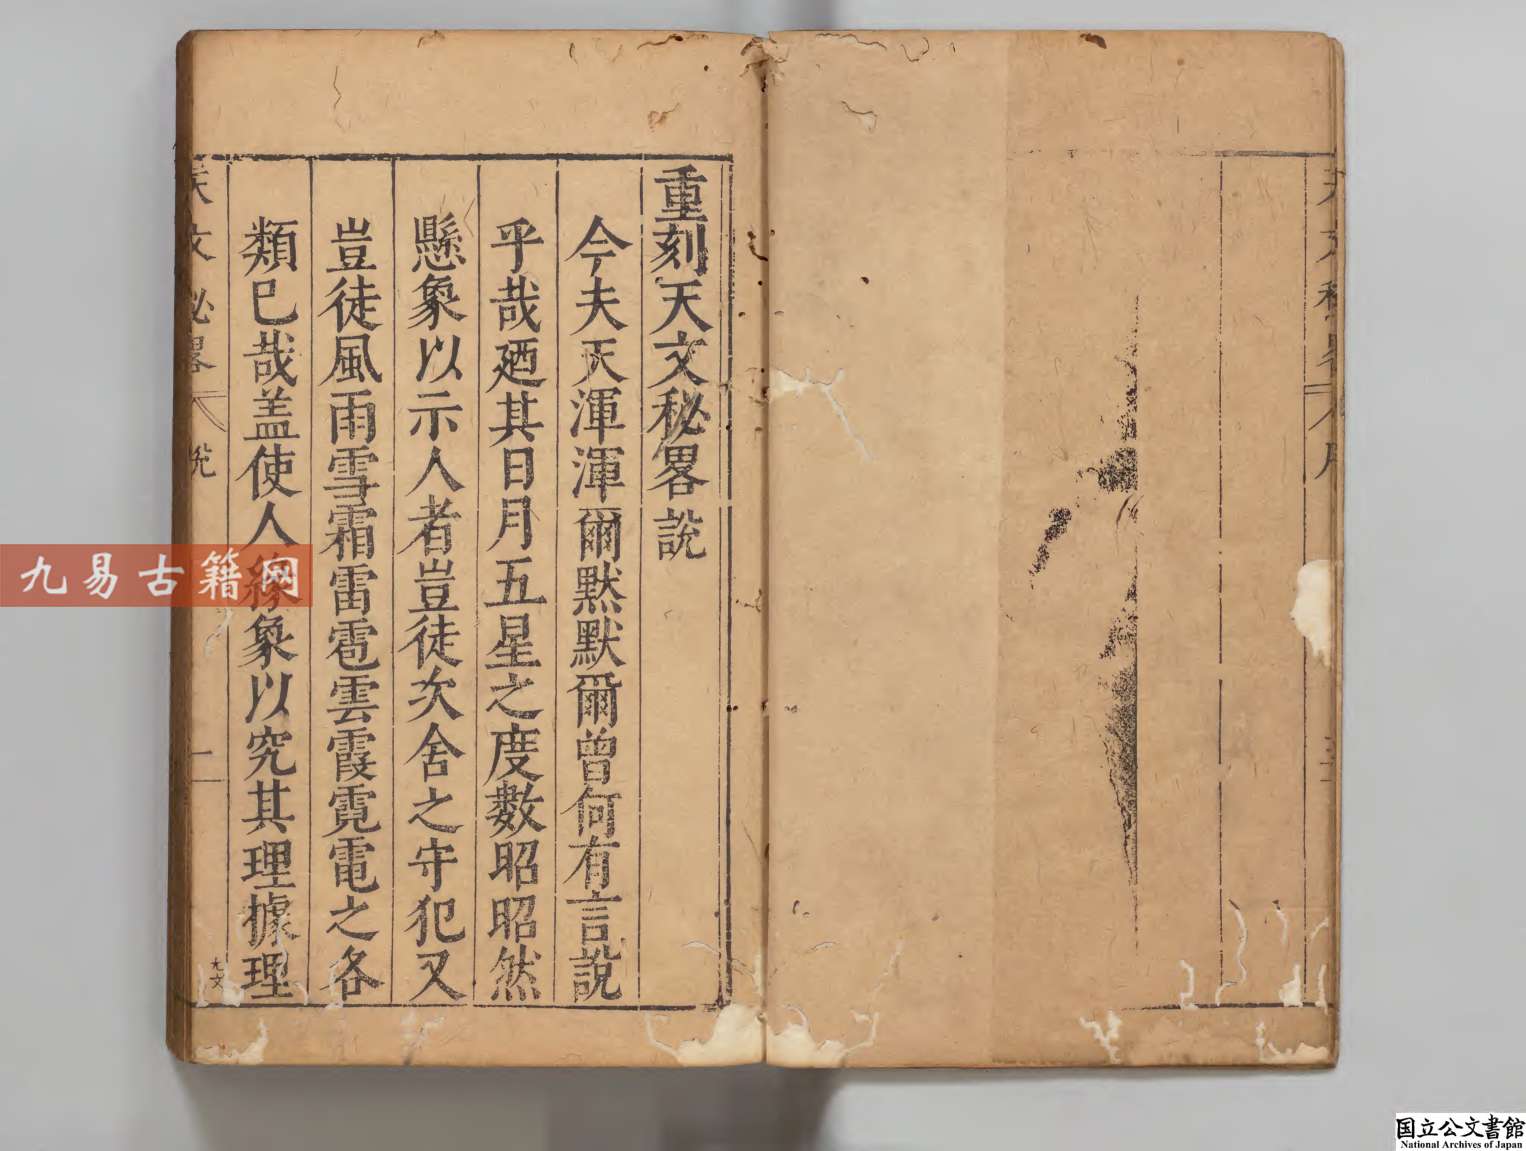 重刻天文秘畧說
今夫天渾渾爾默默爾曾何有言說
乎哉廼其日月五星之度數昭昭然
懸象以示人者豈徒次舍之守犯又
豈徒風雨雪霜雷雹雲霞霓電之各
類已哉盖使人緣象以究其理據理
天文秘畧
說
一
九易古籍网
国立公文書館
National Archives of Japan